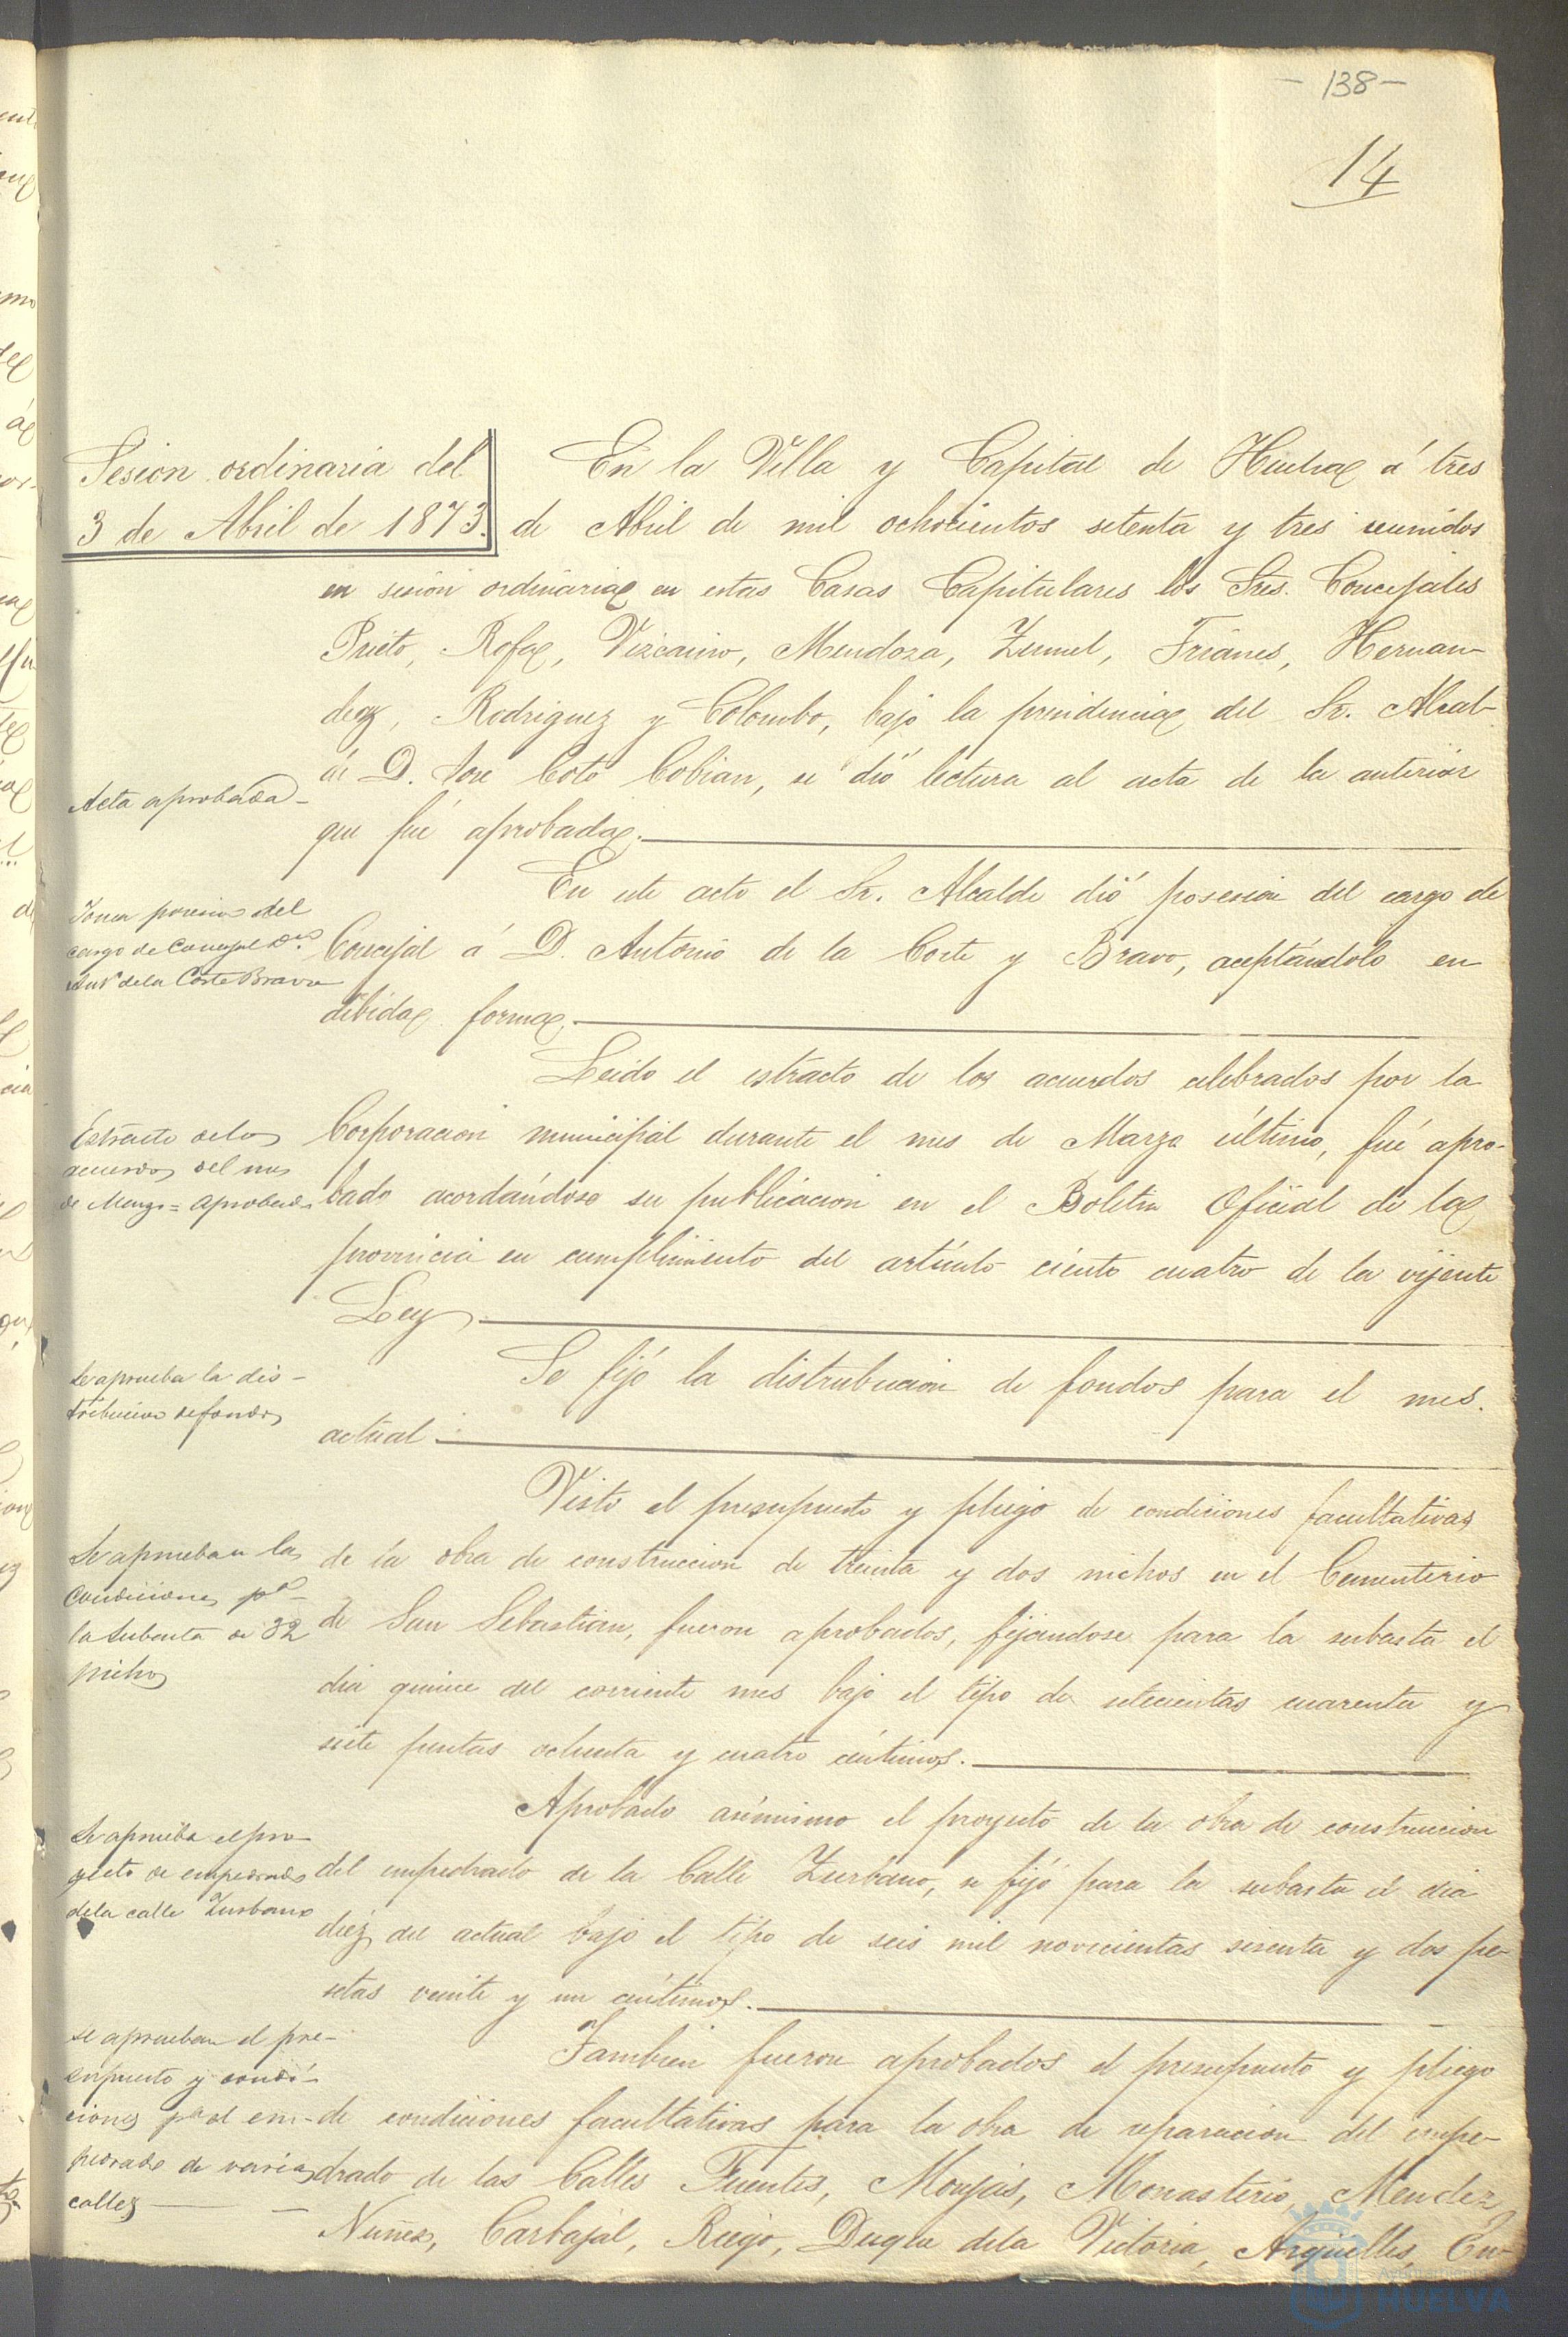 - 138 -
14
Sesion ordinaria del
3 de Abril de 1873.
En la Villa y Capital de Huelva á tres
de Abril de mil ochocientos setenta y tres reunidos
en sesion ordinaria en estas Casas Capitulares los Sres. Concejales
Prieto, Rofa, Vizcaino, Mendoza, Zumel, Trianes, Hernan-
dez, Rodriguez y Colombo, bajo la presidencia del Sr. Alcal-
de D. Jose Coto Cobian, se dió lectura al acta de la anterior
que fué aprobada.
Acta aprobada
En este acto el Sr. Alcalde dió posesion del cargo de
Concejal á D. Antonio de la Corte y Bravo, aceptándolo en
debida forma.
Toma posesion del
cargo de Concejal Dn.
Antº de la Corte Bravo
Leido el estracto de los acuerdos celebrados por la
Corporacion municipal durante el mes de Marzo último, fué apro-
bado acordándose su publicacion en el Boletin Oficial de la
provincia en cumplimiento del artículo ciento cuatro de la vijente
Ley.
Estracto de los
acuerdos del mes
de Marzo = aprobado
Se fijó la distribucion de fondos para el mes
actual.
Se aprueba la dis-
tribucion de fondos
Visto el presupuesto y pliego de condiciones facultativas
de la obra de construccion de treinta y dos nichos en el Cementerio
de San Sebastian, fueron aprobados, fijándose para la subasta el
dia quince del corriente mes bajo el tipo de setecientas cuarenta y
siete pesetas ochenta y cuatro céntimos.
Se aprueban las
condiciones pª
la subasta de 32
nichos
Aprobado asimismo el proyecto de la obra de construccion
del empedrado de la Calle Zurbano, se fijó para la subasta el dia
diez del actual bajo el tipo de seis mil novecientas sesenta y dos pe-
setas veinte y un céntimos.
Se aprueba el pro-
yecto de empedrado
de la calle Zurbano
Tambien fueron aprobados el presupuesto y pliego
de condiciones facultativas para la obra de reparacion del empe-
drado de las Calles Fuentes, Monjas, Monasterio, Mendez
Nuñez, Carbajal, Riego, Duque de la Victoria, Argüelles, En-
se aprueban el pre-
supuesto y condi-
ciones pª el em-
pedrado de varias
calles
HUELVA